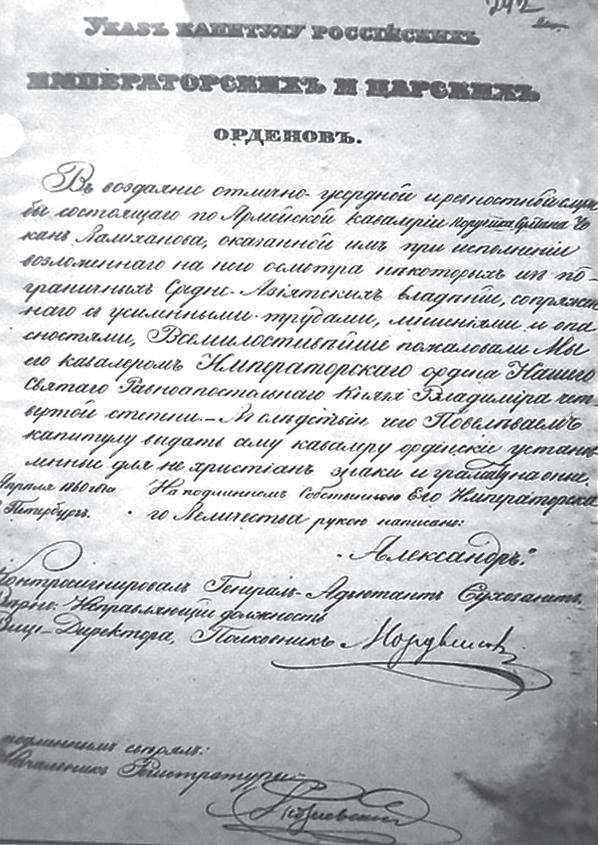 242
Указъ капитулу россійскихъ
императорскихъ и царскихъ
орденовъ.
Въ воздаяніе отлично-усердной и ревностной служ
бы состоящаго по Армейской кавалеріи Поручика Султана Чо
канъ Валиханова, оказанной имъ при исполненіи
возложеннаго на него осмотра нѣкоторыхъ изъ по-
граничныхъ Средне-Азіятскихъ владѣній, сопряжен
наго съ усиленными трудами, лишеніями и опа
сностями, Всемилостивѣйше пожаловали Мы
его кавалеромъ Императорскаго ордена Нашего
Святаго Равноапостольнаго Князя Владиміра чет
вертой степени.— Въ слѣдствіи чего Повелѣваемъ
капитулу выдать сему кавалеру орденскіе установ
ленные для не христіанъ знаки и грамату на оные.
Апрѣля 1860 года На подлинномъ Собственною Его Императорска
С. Петербургъ. го Величества рукою написано:
„Александръ.“
Контросигнировалъ Генералъ-Адъютантъ Сухозанетъ.
Вѣрно: Исправляющій должность
Вице-Директора, Полковникъ Мордвиновъ
подлиннымъ
Начальникъ Регистратуры